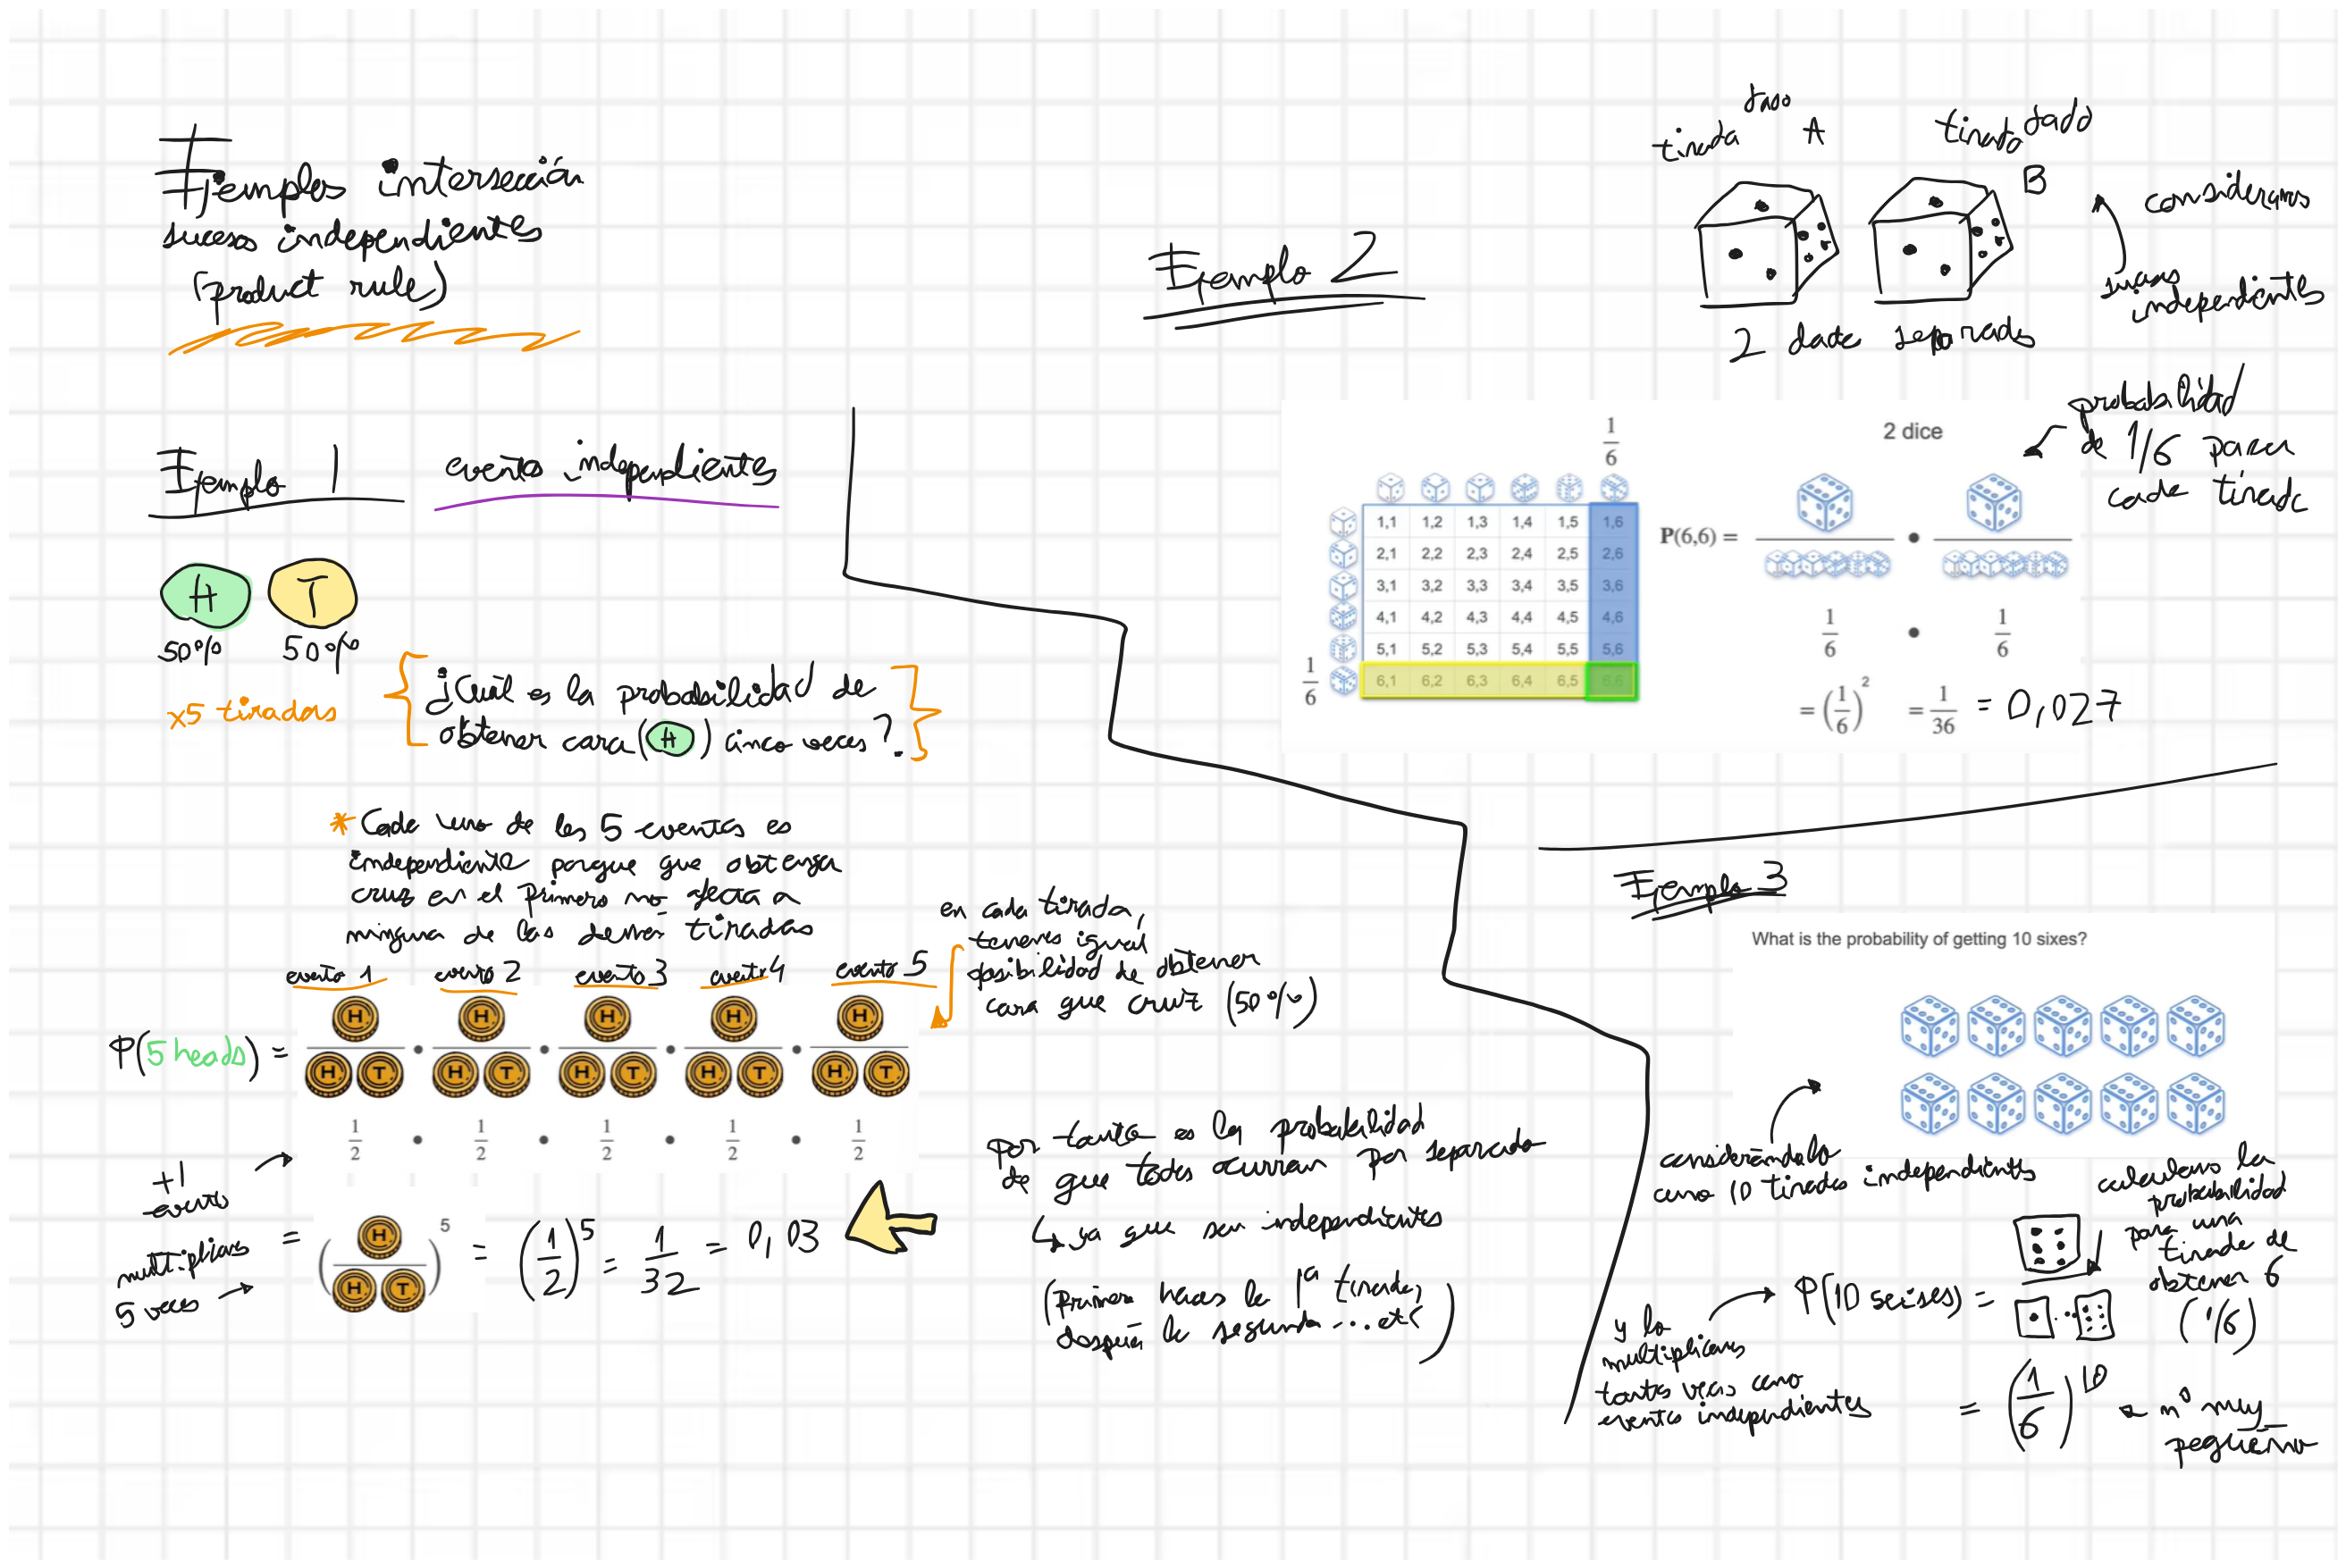 Ejemplos intersección
sucesos independientes
(product rule)
Ejemplo 1
eventos independientes
H
T
50%
50%
x5 tiradas
¿Cuál es la probabilidad de
obtener cara (H) cinco veces?
* Cada uno de los 5 eventos es
independiente porque que obtenga
cruz en el primero no afecta a
ninguna de las demás tiradas
en cada tirada,
tenemos igual
posibilidad de obtener
cara que cruz (50%)
evento 1 evento 2 evento 3 evento 4 evento 5
H H H H H
P(5 heads) =
H T • H T • H T • H T • H T
1/2 • 1/2 • 1/2 • 1/2 • 1/2
+1
evento
multiplicamos
5 veces
= (H / H T)^5 = (1/2)^5 = 1/32 = 0,03
Por tanto es la probabilidad
de que todos ocurran por separado
ya que son independientes
(Primero haces la 1ª tirada,
después la segunda ... etc)
Ejemplo 2
tirada dado A
tirada dado B
consideramos
sucesos
independientes
2 dados separados
probabilidad
de 1/6 para
cada tirada
1/6
2 dice
1,1 1,2 1,3 1,4 1,5 1,6
2,1 2,2 2,3 2,4 2,5 2,6
3,1 3,2 3,3 3,4 3,5 3,6
4,1 4,2 4,3 4,4 4,5 4,6
5,1 5,2 5,3 5,4 5,5 5,6
1/6 6,1 6,2 6,3 6,4 6,5 6,6
P(6,6) =
1/6 • 1/6
= (1/6)^2 = 1/36 = 0,027
Ejemplo 3
What is the probability of getting 10 sixes?
considerándolo
como 10 tiradas independientes
calculamos la
probabilidad
para una
tirada de
obtener 6
(1/6)
P(10 seises) =
y lo
multiplicamos
tantas veces como
eventos independientes
= (1/6)^10
nº muy
pequeño